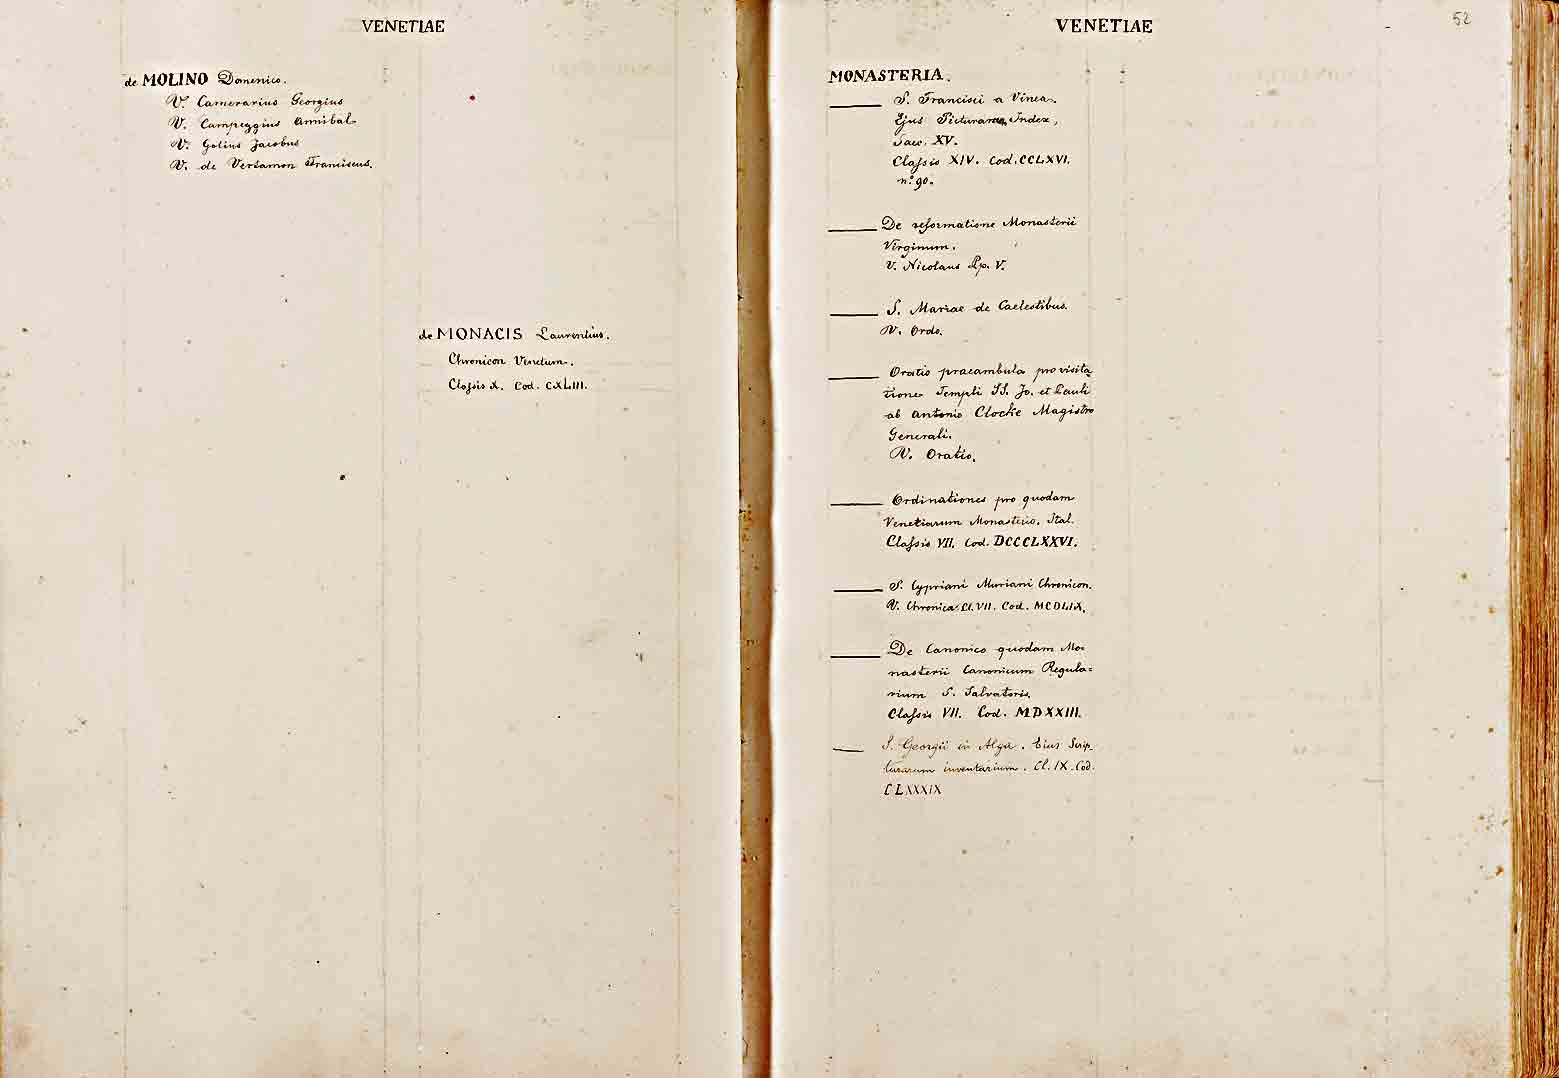 VENETIAE
de MOLINO Domenico.
V. Camerarius Georgius
V. Campeggius Annibal
V. Golius Jacobus
V. de Vertamon Franciscus.
de MONACIS Laurentius.
Chronicon Venetum.
Classis X. Cod. CXLIII.
VENETIAE
52
MONASTERIA.
S. Francisci a Vinea.
Ejus Picturarum Index,
Saec. XV.
Classis XIV. Cod. CCLXVI.
n.° 90.
De reformatione Monasterii
Virginum.
V. Nicolaus Pp. V.
S. Mariae de Caelestibus.
V. Ordo.
Oratio praeambula pro visita
tione Templi SS. Jo. et Pauli
ab Antonio Cloche Magistro
Generali.
V. Oratio.
Ordinationes pro quodam
Venetiarum Monasterio. Ital.
Classis VII. Cod. DCCCLXXVI.
S. Cypriani Muriani Chronicon.
V. Chronica Cl. VII. Cod. MCDLIX.
De Canonico quodam Mo=
nasterii Canonicum Regula=
rium S. Salvatoris.
Classis VII. Cod. MDXXIII.
S. Georgii in Alga. Eius Scrip_
turarum inventarium. Cl. IX. Cod.
CLXXXIX